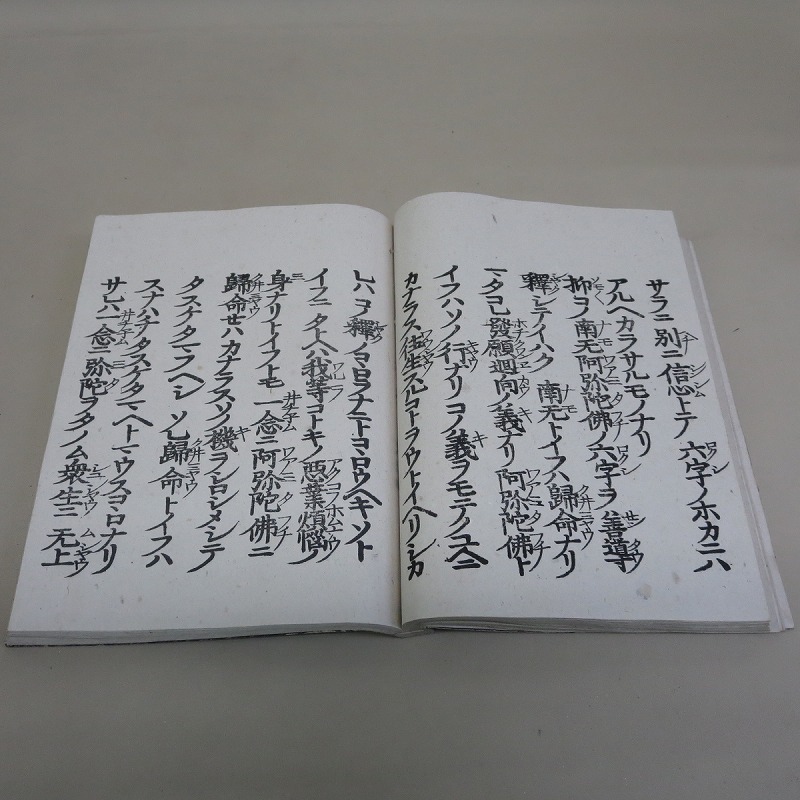 サラニ別ニ信トテ六字ノホカニハ
アルヘカラサルモノナリ
抑コノ南无阿弥陀佛ノ六字ヲ善導
釋シテイハク南无トイフハ歸命ナリ
マタコレ發願迴向ノ義ナリ阿弥陀佛ト
イフハソノ行ナリコノ義ヲモテノユヘニ
カナラス往生スルコトヲウトイヘリシカ
レハコノ釋ノコヽロヲナニトコヽロウヘキソト
イフニタトヘハ我等コトキノ悪業煩惱ノ
身ナリトイフトモ一念ニ阿弥陀佛ニ
歸命セハカナラスソノ機ヲシロシメシテ
タスケタマフヘシソレ歸命トイフハ
スナハチタスケタマヘトマウスコヽロナリ
サレハ一念ニ弥陀ヲタノム衆生ニ无上